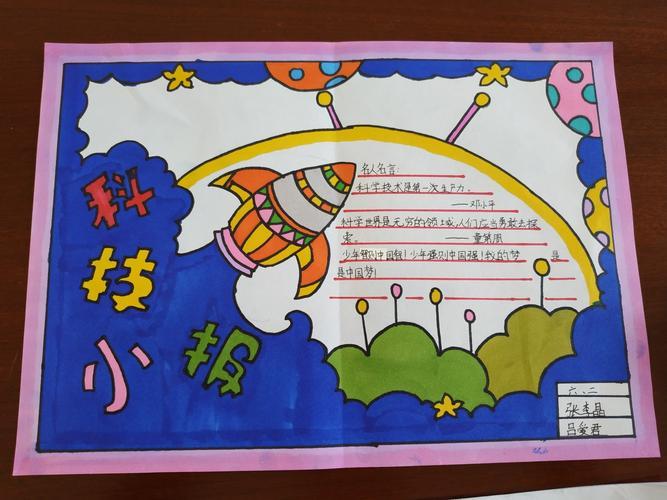 科
技
小报
名人名言：
科学技术是第一次生产力。
——邓小平
科学世界是无穷的领土域，人们应当勇敢去探
索。 ——童第周
少年强则中国强！少年强则中国强！我的梦 是
是中国梦！
六、二
张李晶
吕爱君